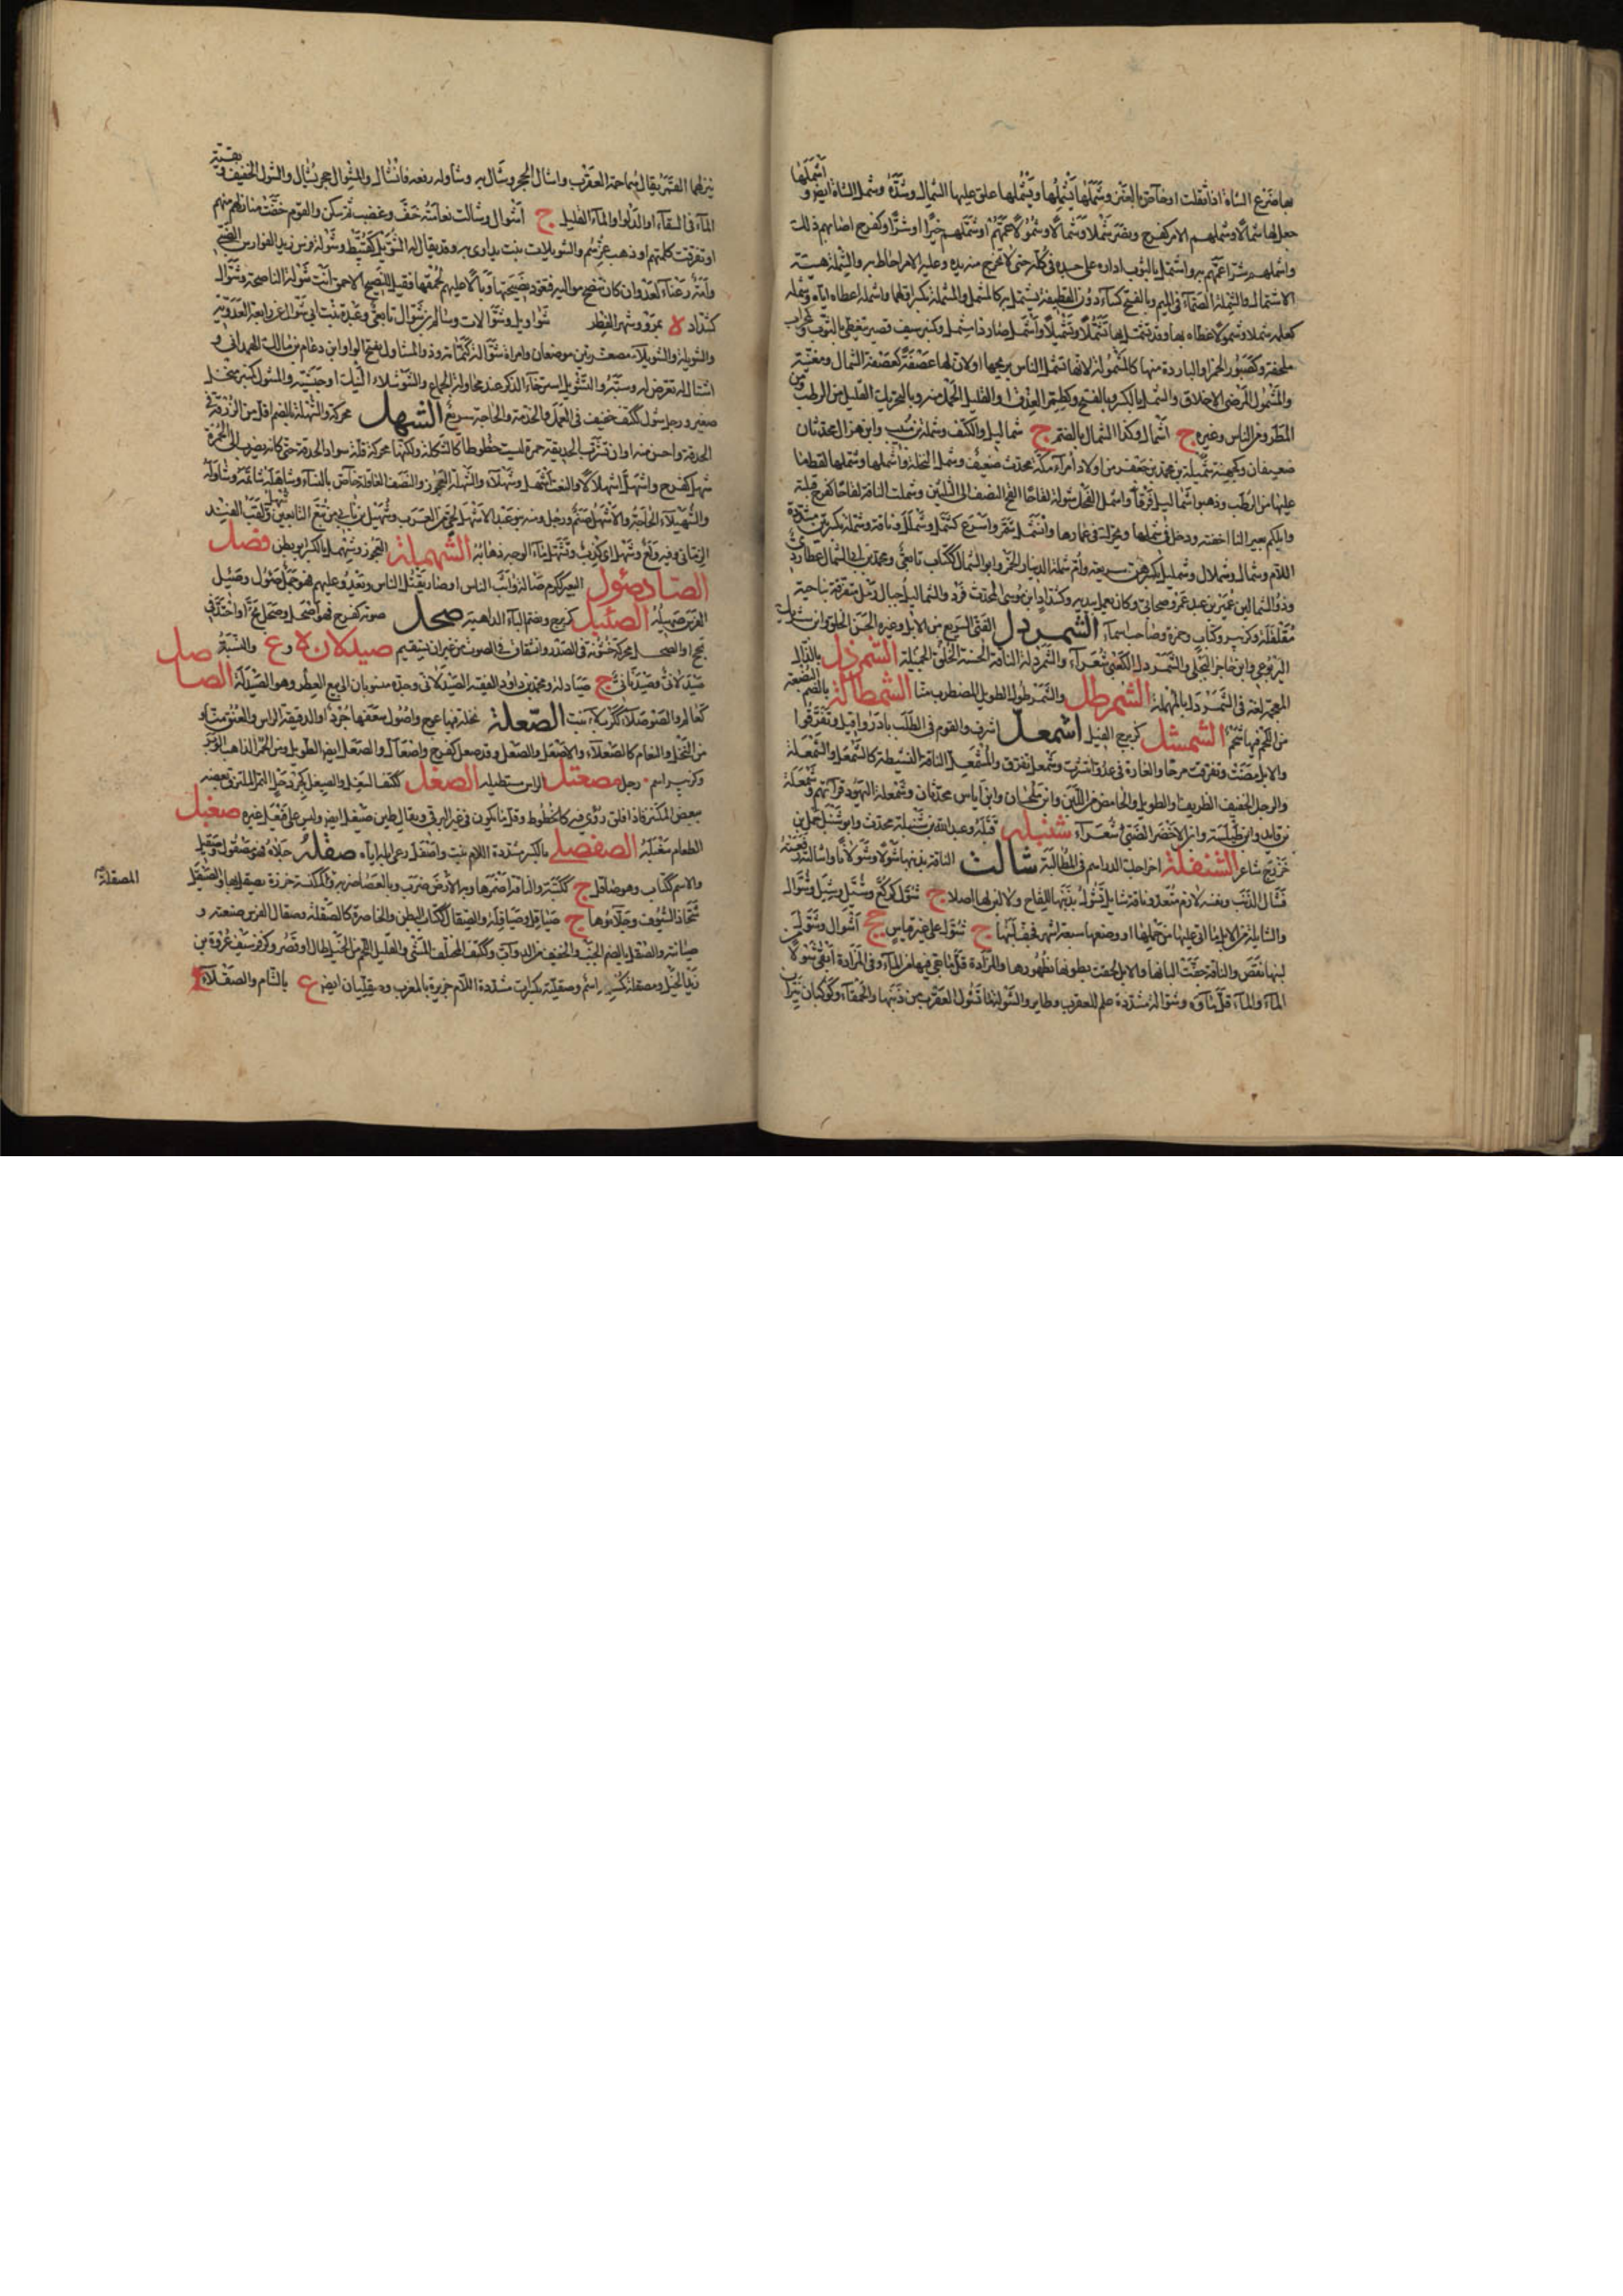 بها ضرع الشاة اذا ثقلت او خاص بالعنز وشملها يشملها ويشملها علق عليها الشمال وشده وشمل الشاة ايض و اشملها
جعل لها شمالا وشملهم الامر كفرح ونصر شملا وشملا وشمولا عمهم او شملهم خيرا او شرا وكفرح اصابهم ذلك
واشملهم شرا عمهم به واشتمل بالثوب اداره على جسده كله حتى لا تخرج منه يده وعليه الامر احاط به والشملة هيئة
الاشتمال والشملة الصماء في الميم وبالفتح كساء دون القطيفة يشتمل به كالمشمل والمشملة بكسر اولهما واشمله اعطاه اياه وشمله
كعلمه شملا وشمولا غطاه بها وقد تشمل بها تشملا وتشميلا واشمل صار ذا مشمل وكمنبر سيف قصير يتغطى بالثوب وكمحراب
ملحفة وكصبور الخمر او الباردة منها كالمشمولة لانها تشمل الناس بريحها او لان لها عصفة كعصفة الشمال ومغنية
والمشمول المرضى الاخلاق والشمل بالكسر وبالفتح وكطمر العذق او القليل الحمل منه وبالتحريك القليل من الرطب ومن
المطر ومن الناس وغيره ج اشمال وكذا الشمال بالضم ج شماليل والكتف وشملة بن منيب وابن هزال محدثان
ضعيفان وكجهينة شميلة بن محمد بن جعفر من اولاد امراء مكة محدث ضعيف وشمل النخلة واشملها وشملها لقط ما
عليها من الرطب وذهبوا شماليل فرقا واشمل الفحل شوله لقاحا القح النصف الى الثلثين وشملت الناقة لقاحا كفرح قبلته
وابلكم بعيرا لنا اخفته ودخل في شملها ويحرك اى في غمارها وانشمل شمر واسرع كشمل وشملل وناقة وشملة بكسرتين مشددة
اللام وشمال وشملال وشمليل بكسرهن سريعة وام شملة الدنيا والخمر وابو الشمال ككتاب تابعى ومحمد بن ابى الشمال عطاردى
وذو الشمالين عمير بن عبد عمرو صحابى وكان يعمل بيديه وكشداد ابن موسى المحدث فرد والشماليل جبال رمل متفرقة بناحية
معقلة وكزبير وكتاب وحمزة وصاحب اسماء الشمردل الفتى السريع من الابل وغيره الحسن الخلق وابن شريك
اليربوعى وابن حاجز البجلى والشمردل الكعبى شعراء والشمردلة الناقة الحسنة الخلق الجميلة الشمرذل بالذال
المعجمة لغة فى الشمردل بالمهملة الشمرطل والشمرطول الطويل المضطرب منا الشمطالة بالضم البضعة
من اللحم فيها شحم الشمشل كزبرج الفيل اشمعل اشرف والقوم فى الطلب بادروا فيه وتفرقوا
والابل مضت وتفرقت مرحا والغارة فى عدو انتشرت وشمعل تفرق والمشمعل الناقة النشيطة كالشمعل والشمعلة
والرجل الخفيف الظريف او الطويل والحامض من اللبن وابن ملحان وابن اياس محدثان وشمعلة اليهود قراءتهم وشمعلة
بن فايد وابن طيلسة وابن الاخضر الضبى شعراء شنبله قبله وعبد الله بن شنبلة محدث وابو شنبل حمل بن
خزرج شاعر الشنفلة اخراجك الدراهم فى المطالبة شالت الناقة بذنبها شولا وشولانا واشالته رفعته
فشال الذنب وبنفسه لازم متعد وناقة شايل تشول بذنبها للقاح ولا لبن لها اصلا ج شول كركع وشيل وشيل وشوال
والشايلة من الابل ما اتى عليها من حملها او وضعها سبعة اشهر فجف لبنها ج شول على غير قياس جج اشوال وشولت
لبنها نقص والناقة جفت البانها والابل لحقت بطونها بظهورها والمزادة قل ما بقى فيها من الماء وفى المزادة ابقى شولا من
الماء والماء قل ماؤه وشوالة مشددة علم للعقرب وطاير والشولة ما تشول العقرب من ذنبها والحمقاء وكوكبان نيران
ينزلهما القمر يقال لهما حمة العقرب واشال الحجر وشال به وشاوله رفعه فانشال والمشوال حجر يشال والشول الخفيف و بقية
الماء فى السقاء او الدلو او الماء القليل ج اشوال وشالت نعامته خف وغضب ثم سكن والقوم خفت منازلهم منهم
او تفرقت كلمتهم او ذهب عزهم والشويلاء نبت يداوى به وقد يقال له الشويل كقبيط وشولة فرس زيد الفوارس الضبى
وامة رعناء لعدوان كان تنصح مواليها فتعود نصيحتها وبالا عليهم لحمقها فقيل للنصيح الاحمق انت شولة الناصحة وشوال
كشداد ة بمرو وشهر الفطر شواويل وشوالات وسالم بن شوال تابعى وعبدة بنت ابى شوال عن رابعة العدوية
والشويلة والشويلاء مصغرتين موضعان وامراة شوالة نمامة وذو المشاول بفتح الواو ابن دعام بن مالك الهمدانى و
اشتال له تعرض له وسبه والتشويل استرخاء الذكر عند محاولة الجماع والشوشلاء النيك او حبشية والمشول كمنبر منجل
صغير ورجل شول ككتف خفيف فى العمل والخدمة والحاجة سريع الشهل محركة والشهلة بالضم اقل من الزرق فى
الحدقة واحسن منه او ان تشرب الحدقة حمرة ليست خطوطا كالشكلة ولكنها محركة قلة سواد الحدقة حتى كانه يضرب الى الحمرة
شهل كفرح واشهل اشهلالا والنعت اشهل وشهلاء والشهلة العجوز والنصف العاقلة خاص بالنساء وشاهله شاتمه وشاوله
والشهلاء الحاجة والاشهل صنم ورجل ومنه بنو عبد الاشهل لحى من العرب وشهيل بن نابى من تبع التابعين ولقب الفند شهل
الزمانى وفيه ولع وشهل اى كذب وتشهل ماء الوجه ذهابه الشهملة العجوز وشهميل بالكسر ابو بطن فصل
الصاد صؤل البعير ككرم صآلة واثب الناس او صار يقتل الناس ويعدو عليهم فهو جمل صؤول وصئيل
الفرس صهيله الصئبل كزبرج وبضم الباء الداهية صحل صوته كفرح فهو اصحل وصحل بح او احتد فى
بحح او الصحل محركة خشونة فى الصدر وانشقاق فى الصوت من غير ان يستقيم صيدلان ة و ع والنسبة
صيدلانى وصيدنانى ج صيادلة ومحمد بن داود الفقيه الصيدلانى وجده منسوبان الى بيع العطر وهو الصيدلة الصاصل
كعالم والصوصلاء ككربلاء نبت الصعلة نخلة فيها عوج واصول سعفها جرد او الدقيقة الراس والعنق منا و
من النخل والنعام كالصعلاء والاصعل والصعل وقد صعل كفرح واصعال والصعل ايض الطويل ومن الحمر الذاهب الوبر
وكزبير اسم رجل مصعتل الراس مستطيله الصغل ككتف السيئ الغذاء والصيغل كحردحل التمر الملتزق بعضه
ببعض المكتنز فاذا فلق رؤى فيه كالخطوط وقل ما يكون فى غير البرنى ويقال طين صيغل ايض وليس على فيعل غيره صغبل
الطعام سغبله الصفصلى بالكسر مشددة اللام نبت واصفل رعى ابله اياه صقله جلاه فهو مصقول وصقيل
والاسم ككتاب وهو صاقل ج ككتبة والناقة اضمرها وبه الارض ضرب وبالعصا ضربه وكمكنسة خرزة يصقل بها والصيقل المصقلة
شحاذ السيوف وجلاؤها ج صياقل وصياقلة والصقال ككتاب البطن والخاصرة كالصقلة وصقال الفرس صنعته و
صيانته والصقل بالضم الجنب والخفيف من الدواب وككتف المختلف المشى والقليل اللحم من الخيل طال او قصر وكزفر سيف عروة بن
زيد الخيل ومصقلة كمسلمة اسم وصقلية بكسرات مشددة اللام جزيرة بالمغرب وصقليان ايض ع بالشام والصقلاء ع